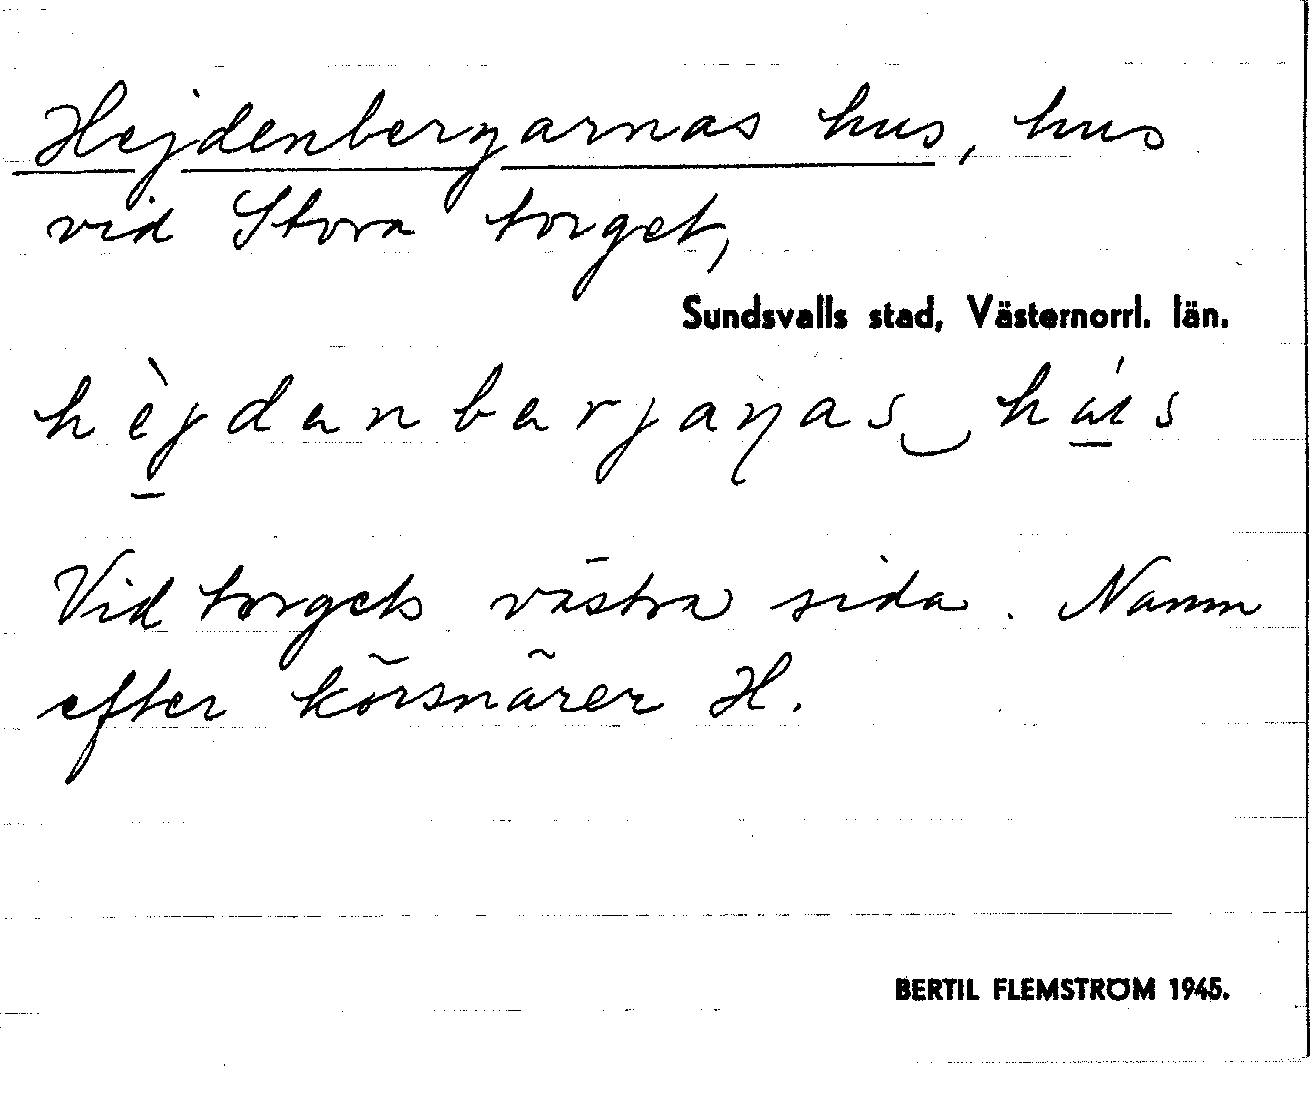 Hejdenbergarnas hus, hus
vid Stora torget,
Sundsvalls stad, Västernorrl. län.
hèjdanbarjaɳas‿hús
Vid torgets västra sida. Namn
efter körsnärer H.
BERTIL FLEMSTRÖM 1945.